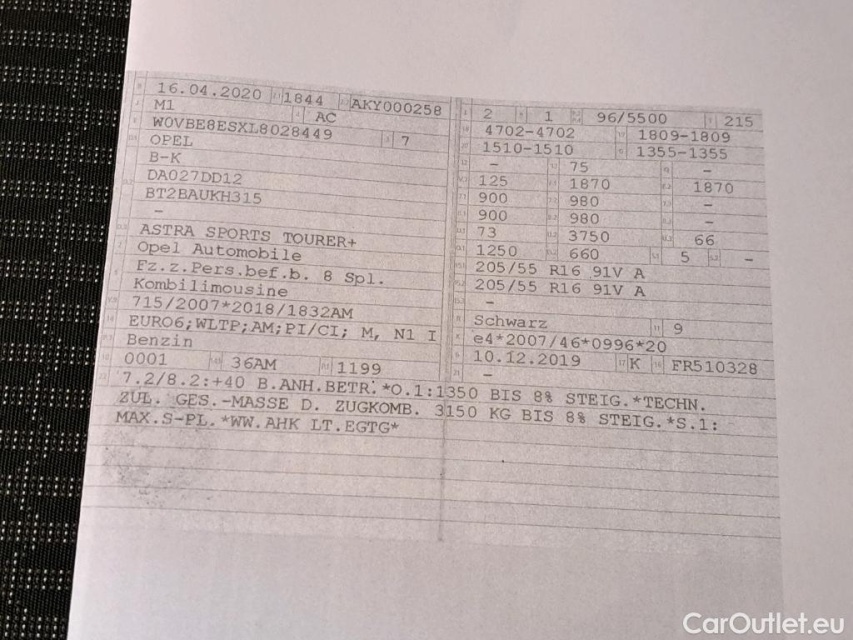 16.04.2020 1844 AKY000258
M1 AC
W0VBE8ESXL8028449 7
OPEL
B-K
DA027DD12
BT2BAUKH315
–
ASTRA SPORTS TOURER+
Opel Automobile
Fz.z.Pers.bef.b. 8 Spl.
Kombilimousine
715/2007*2018/1832AM
EURO6;WLTP;AM;PI/CI; M, N1 I
Benzin
0001 36AM 1199
2 1 96/5500 215
4702-4702 1809-1809
1510-1510 1355-1355
– 75 –
125 1870 1870
900 980 –
900 980 –
73 3750 66
1250 660 5 –
205/55 R16 91V A
205/55 R16 91V A
–
Schwarz 9
e4*2007/46*0996*20
10.12.2019 K FR510328
–
7.2/8.2:+40 B.ANH.BETR.*O.1:1350 BIS 8% STEIG.*TECHN.
ZUL. GES.-MASSE D. ZUGKOMB. 3150 KG BIS 8% STEIG.*S.1:
MAX.S-PL.*WW.AHK LT.EGTG*
CarOutlet.eu